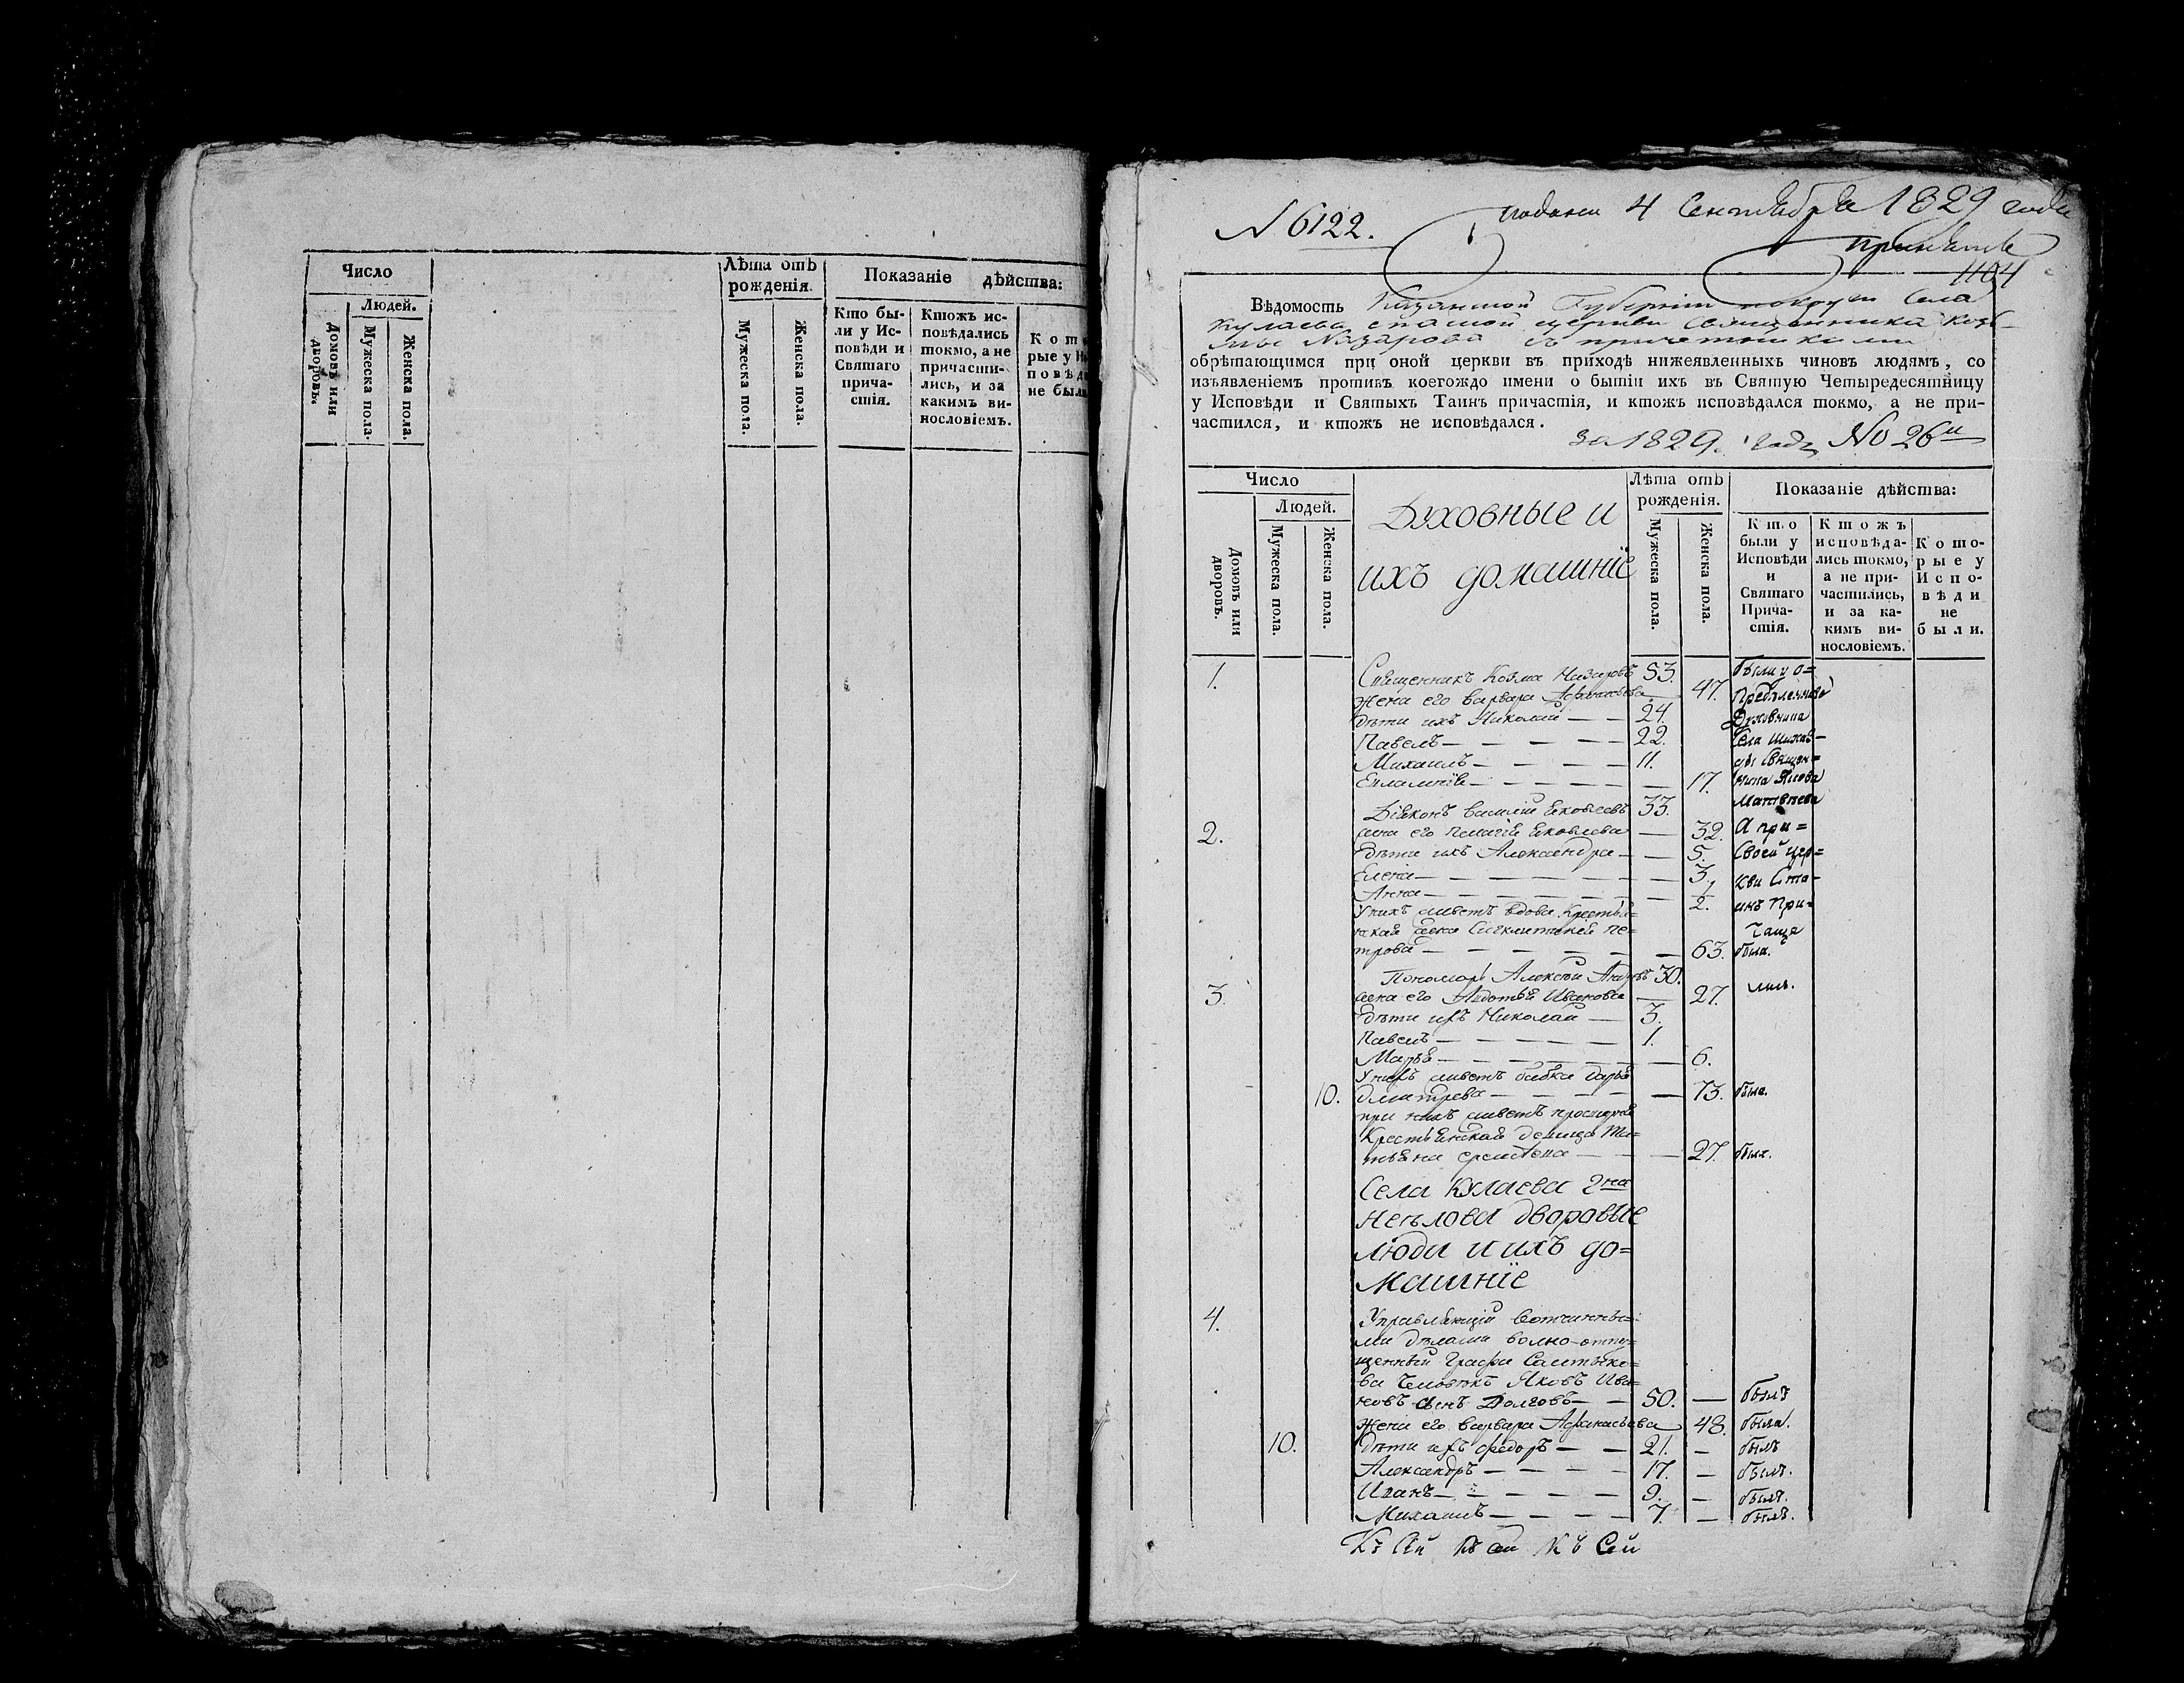 Число
Людей.
Домовъ или дворовъ.
Мужеска пола.
Женска пола.
Лѣта отъ рожденія.
Мужеска пола.
Женска пола.
Показаніе дѣйства:
Кто бы-
ли у Ис-
повѣди и
Святаго
прича-
стія.
Ктожъ ис-
повѣдались
токмо, а не
причасти-
лись, и за
какимъ ви-
нословіемъ.
Кото
рые у И
повѣд
не были
N 6122.
подана 4 Сентября 1829 года
1104
Вѣдомость Казанской Губерніи округи Села
Кулаева спаской церкви священника Козь-
мы Назарова съ причетниками
обрѣтающимся при оной церкви въ приходѣ нижеявленныхъ чиновъ людямъ, со
изъявленіемъ противъ коегождо имени о бытіи ихъ въ Святую Четыредесятницу
у Исповѣди и Святыхъ Таинъ причастія, и ктожъ исповѣдался токмо, а не при-
частился, и ктожъ не исповѣдался.
за 1829. годъ No 26й
Число
Людей.
Домовъ или дворовъ.
Мужеска пола.
Женска пола.
Духовные и
ихъ домашніе
Лѣта отъ рожденія.
Мужеска пола.
Женска пола.
Показаніе дѣйства:
Кто
были у
Исповѣди
и
Святаго
Прича-
стія.
Ктожъ
исповѣда-
лись токмо,
а не при-
частились,
и за ка-
кимъ ви-
нословіемъ.
Кото-
рые у
Испо-
вѣди
не
были.
1. Священникъ Козма Назаровъ 53. были у о=
жена его Варвара Афанасьева — 47.
дѣти ихъ Николай — — 24. Духовника
Павелъ — — — — 22. Села
Михаилъ — — — — 11. Священ=
— — — — — 17. ника Якова
Матвѣева
Діяконъ Василій Яковлевъ 33.
2. жена его Пелагія Яковлева — 32. А при=
дѣти ихъ Александра — — 5. Своей цер=
Елена — — — — — 3, кви
Анна — — — — — 2. при=
У нихъ живетъ вдова Крестья= чаще
нская жена Пе=
трова — — — — — 63. была.
Пономарь Алексѣй 30.
3. жена его Авдотья Иванова — 27.
дѣти ихъ Николай — 3.
Павелъ — — — — 1.
Марья — — — — — 6.
У нихъ живетъ бабка Дарья
10. Дмитрева — — — — — 73. была.
при нихъ живетъ
Крестьянская девица Та=
тьяна — — — 27. была.
Села Кулаева 2на
Неѣлова дворовые
люди и ихъ до=
машніе
4. Управляющій Вотчинны=
ми дѣлами волно-отпу=
щенный Графа Салтыко=
ва Человѣкъ Яковъ Ива=
новъ сынъ Долговъ — — 50. — былъ
Жена его Варвара Афанасьева 48. была.
10. дѣти ихъ Федоръ — — 21. — былъ
Александръ — — — — 17. — былъ.
Иванъ — — — — 9. — былъ.
Михаилъ — — — — 7. — былъ.